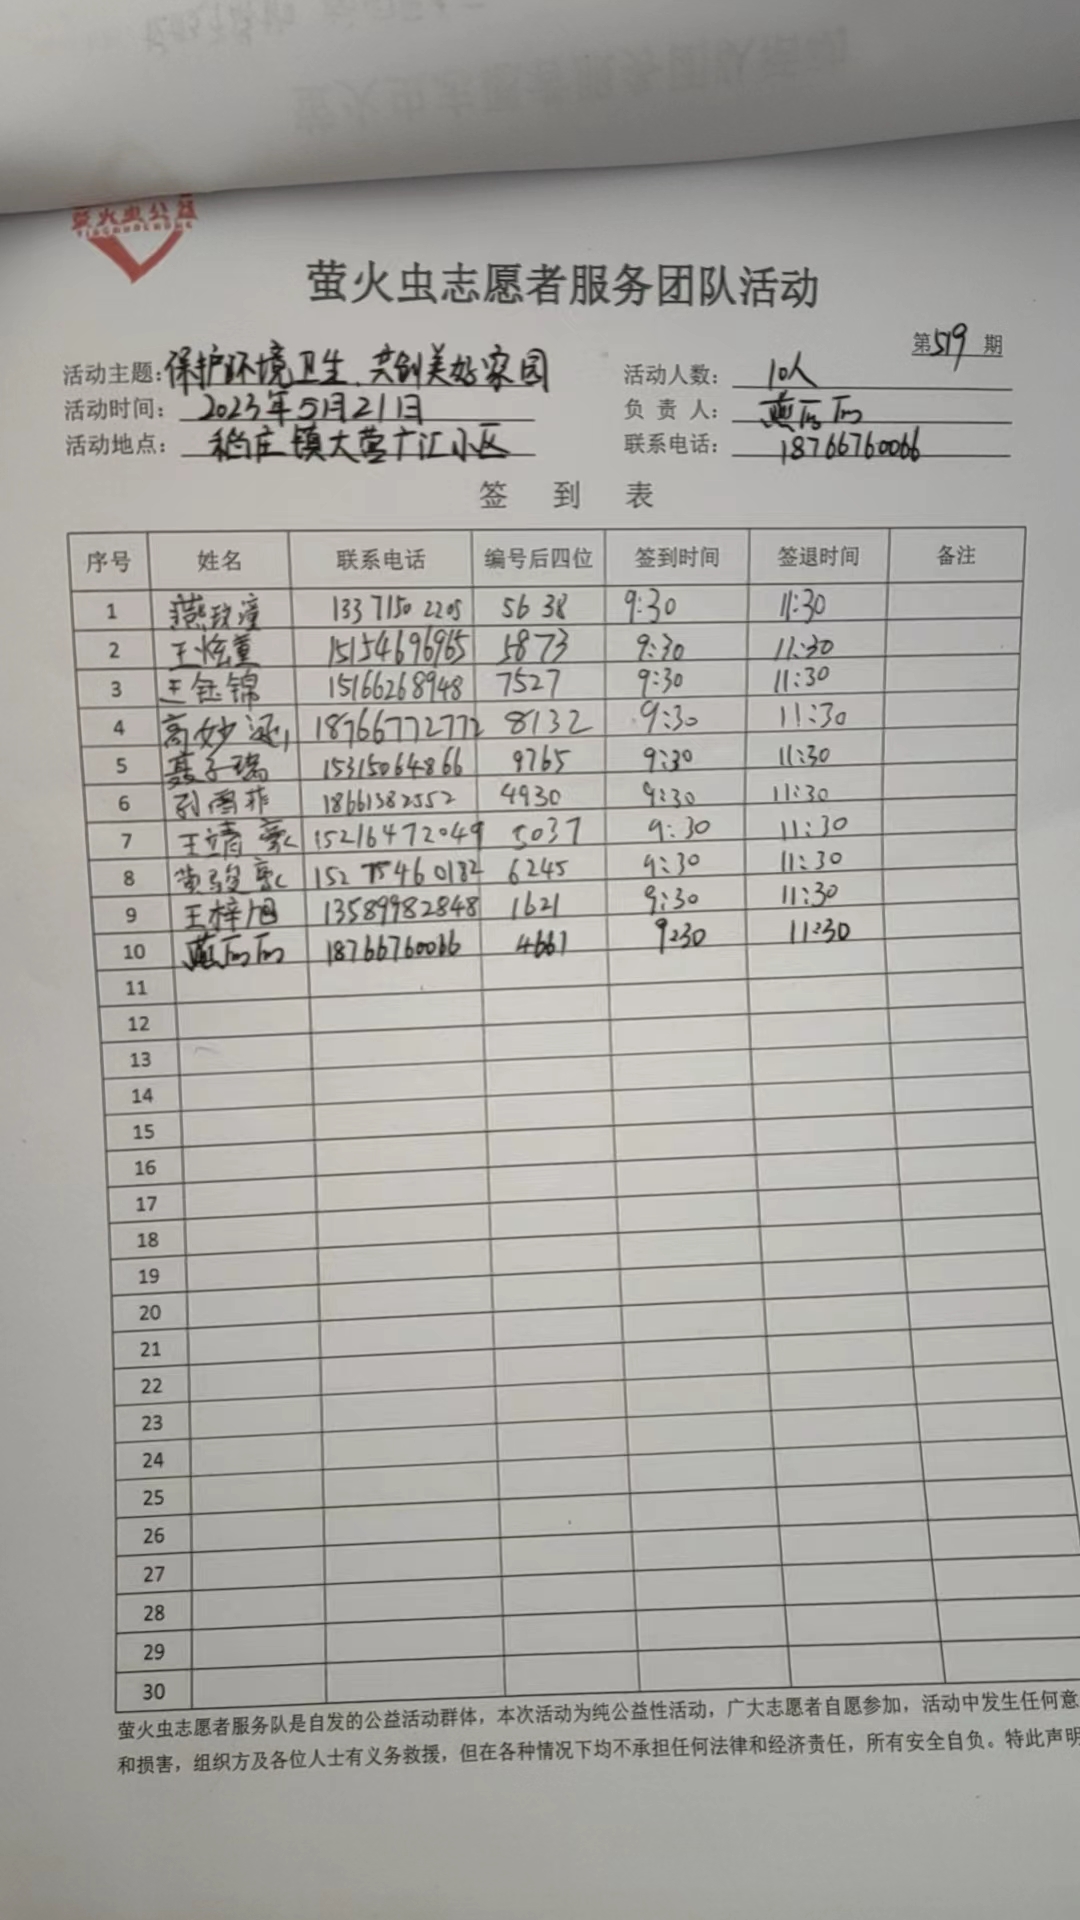 萤火虫公益
萤火虫志愿者服务团队活动
第519期
活动主题：保护环境卫生、共创美好家园 活动人数：10人
活动时间：2023年5月21日 负责人：燕丽丽
活动地点：稻庄镇大营广汇小区 联系电话：18766760066
签到表
序号 姓名 联系电话 编号后四位 签到时间 签退时间 备注
1 燕 13371502205 5638 9:30 11:30
2 王炫董 15154696965 5873 9:30 11:30
3 王钰锦 15166268948 7527 9:30 11:30
4 高妙涵 18766772772 8132 9:30 11:30
5 聂子瑞 15315064866 9765 9:30 11:30
6 刘雨菲 18661382552 4930 9:30 11:30
7 王靖豪 15216472049 5037 9:30 11:30
8 黄骏豪 15275460182 6245 9:30 11:30
9 王梓旭 13589982848 1621 9:30 11:30
10 燕丽丽 18766760066 4661 9:30 11:30
11
12
13
14
15
16
17
18
19
20
21
22
23
24
25
26
27
28
29
30
萤火虫志愿者服务队是自发的公益活动群体，本次活动为纯公益性活动，广大志愿者自愿参加，活动中发生任何意
和损害，组织方及各位人士有义务救援，但在各种情况下均不承担任何法律和经济责任，所有安全自负。特此声明